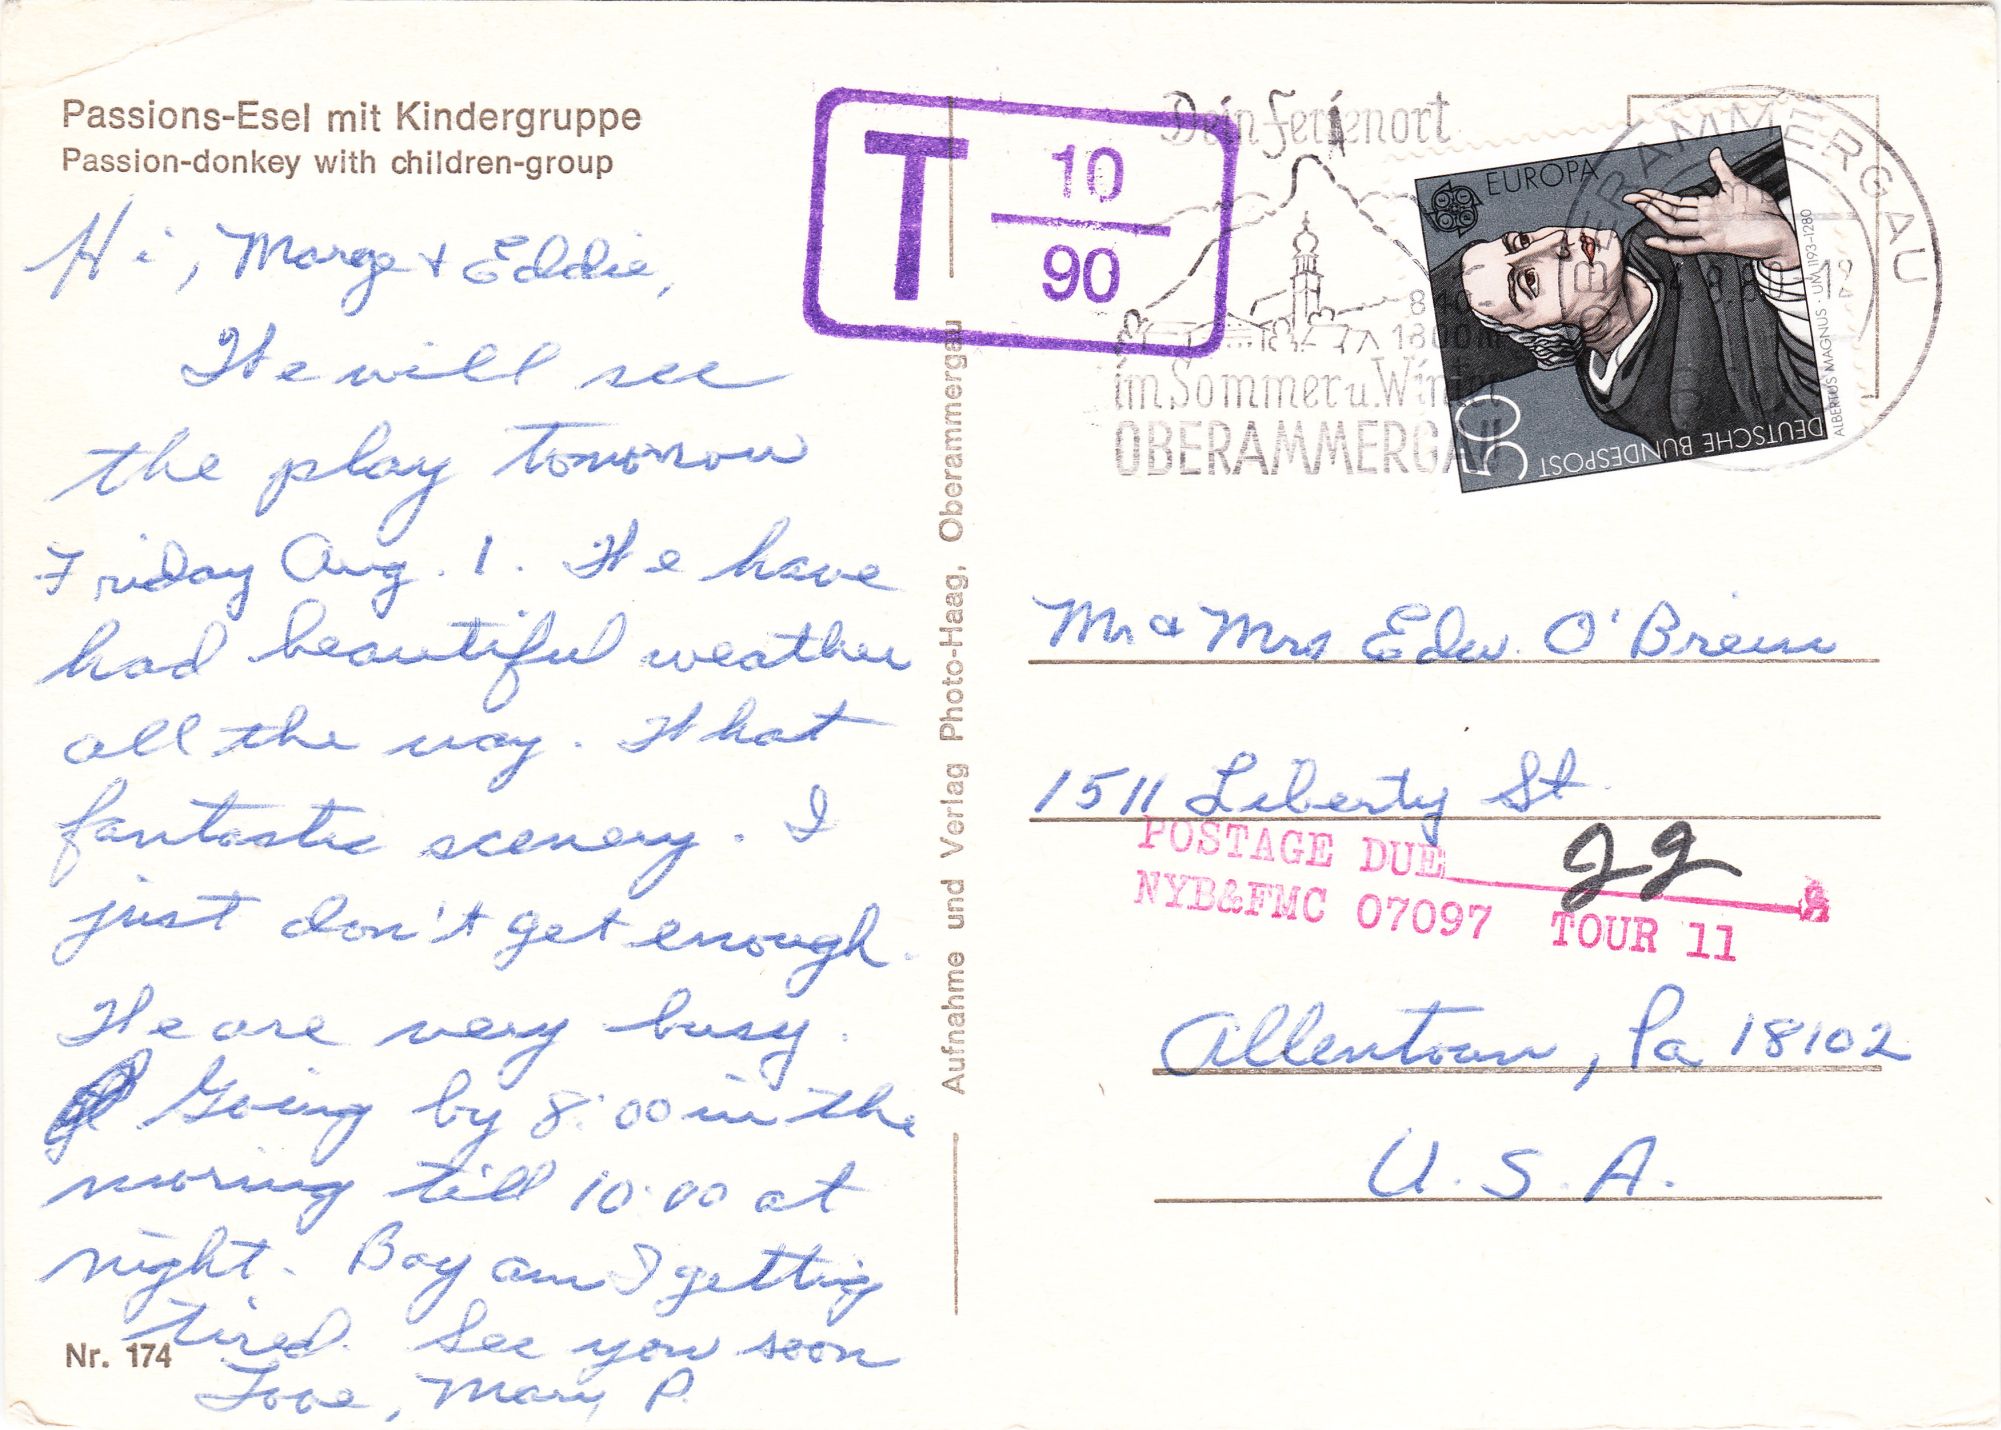 Passions-Esel mit Kindergruppe
Passion-donkey with children-group
Hi, Marge & Eddie,
We will see
the play tomorrow
Friday Aug. 1. We have
had beautiful weather
all the way. What
fantastic scenery. I
just don't get enough.
We are very busy.
Going by 8:00 in the
moring till 10:00 at
night. Boy am I getting
tired. See you soon
Love, Mary P.
Nr. 174
Aufnahme und Verlag Photo-Haag, Oberammergau
T 10
90
Dein Ferienort
840-
1800m
im Sommer u. Winter
OBERAMMERGAU
OBERAMMERGAU
EUROPA
ALBERTUS MAGNUS · UM 1193-1280
DEUTSCHE BUNDESPOST
50
Mr & Mrs Edw. O'Brein
1511 Liberty St.
POSTAGE DUE
NYB&FMC 07097 TOUR 11
Allentown, Pa 18102
U.S.A.